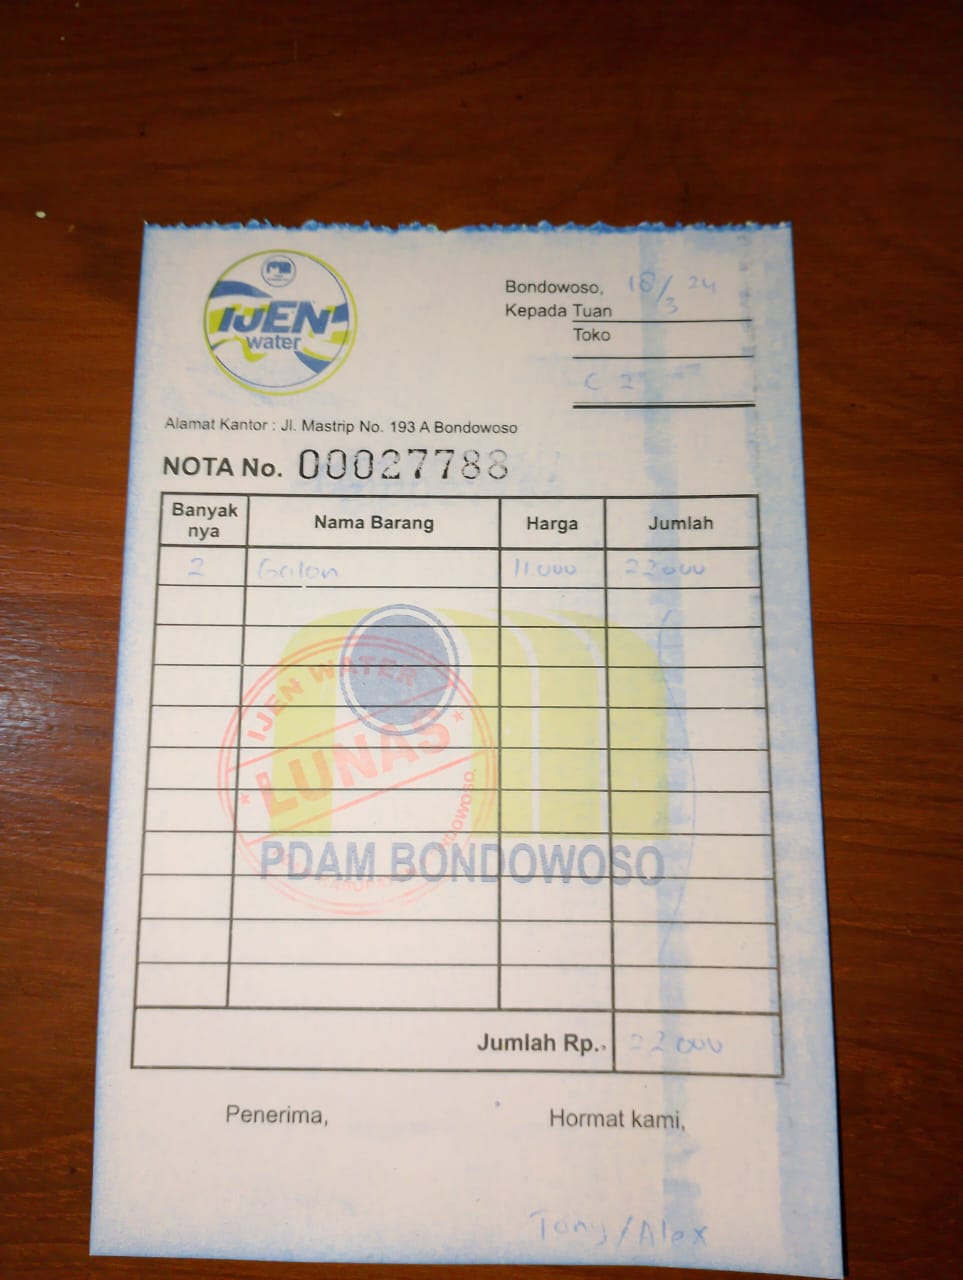 IJEN
water
Bondowoso, 18/3 24
Kepada Tuan
Toko
C 2
Alamat Kantor : Jl. Mastrip No. 193 A Bondowoso
NOTA No. 00027788
Banyak nya Nama Barang Harga Jumlah
2 Galon 11.000 22.000
IJEN WATER
LUNAS
PDAM BONDOWOSO
Jumlah Rp. 22.000
Penerima, Hormat kami,
Tony/Alex